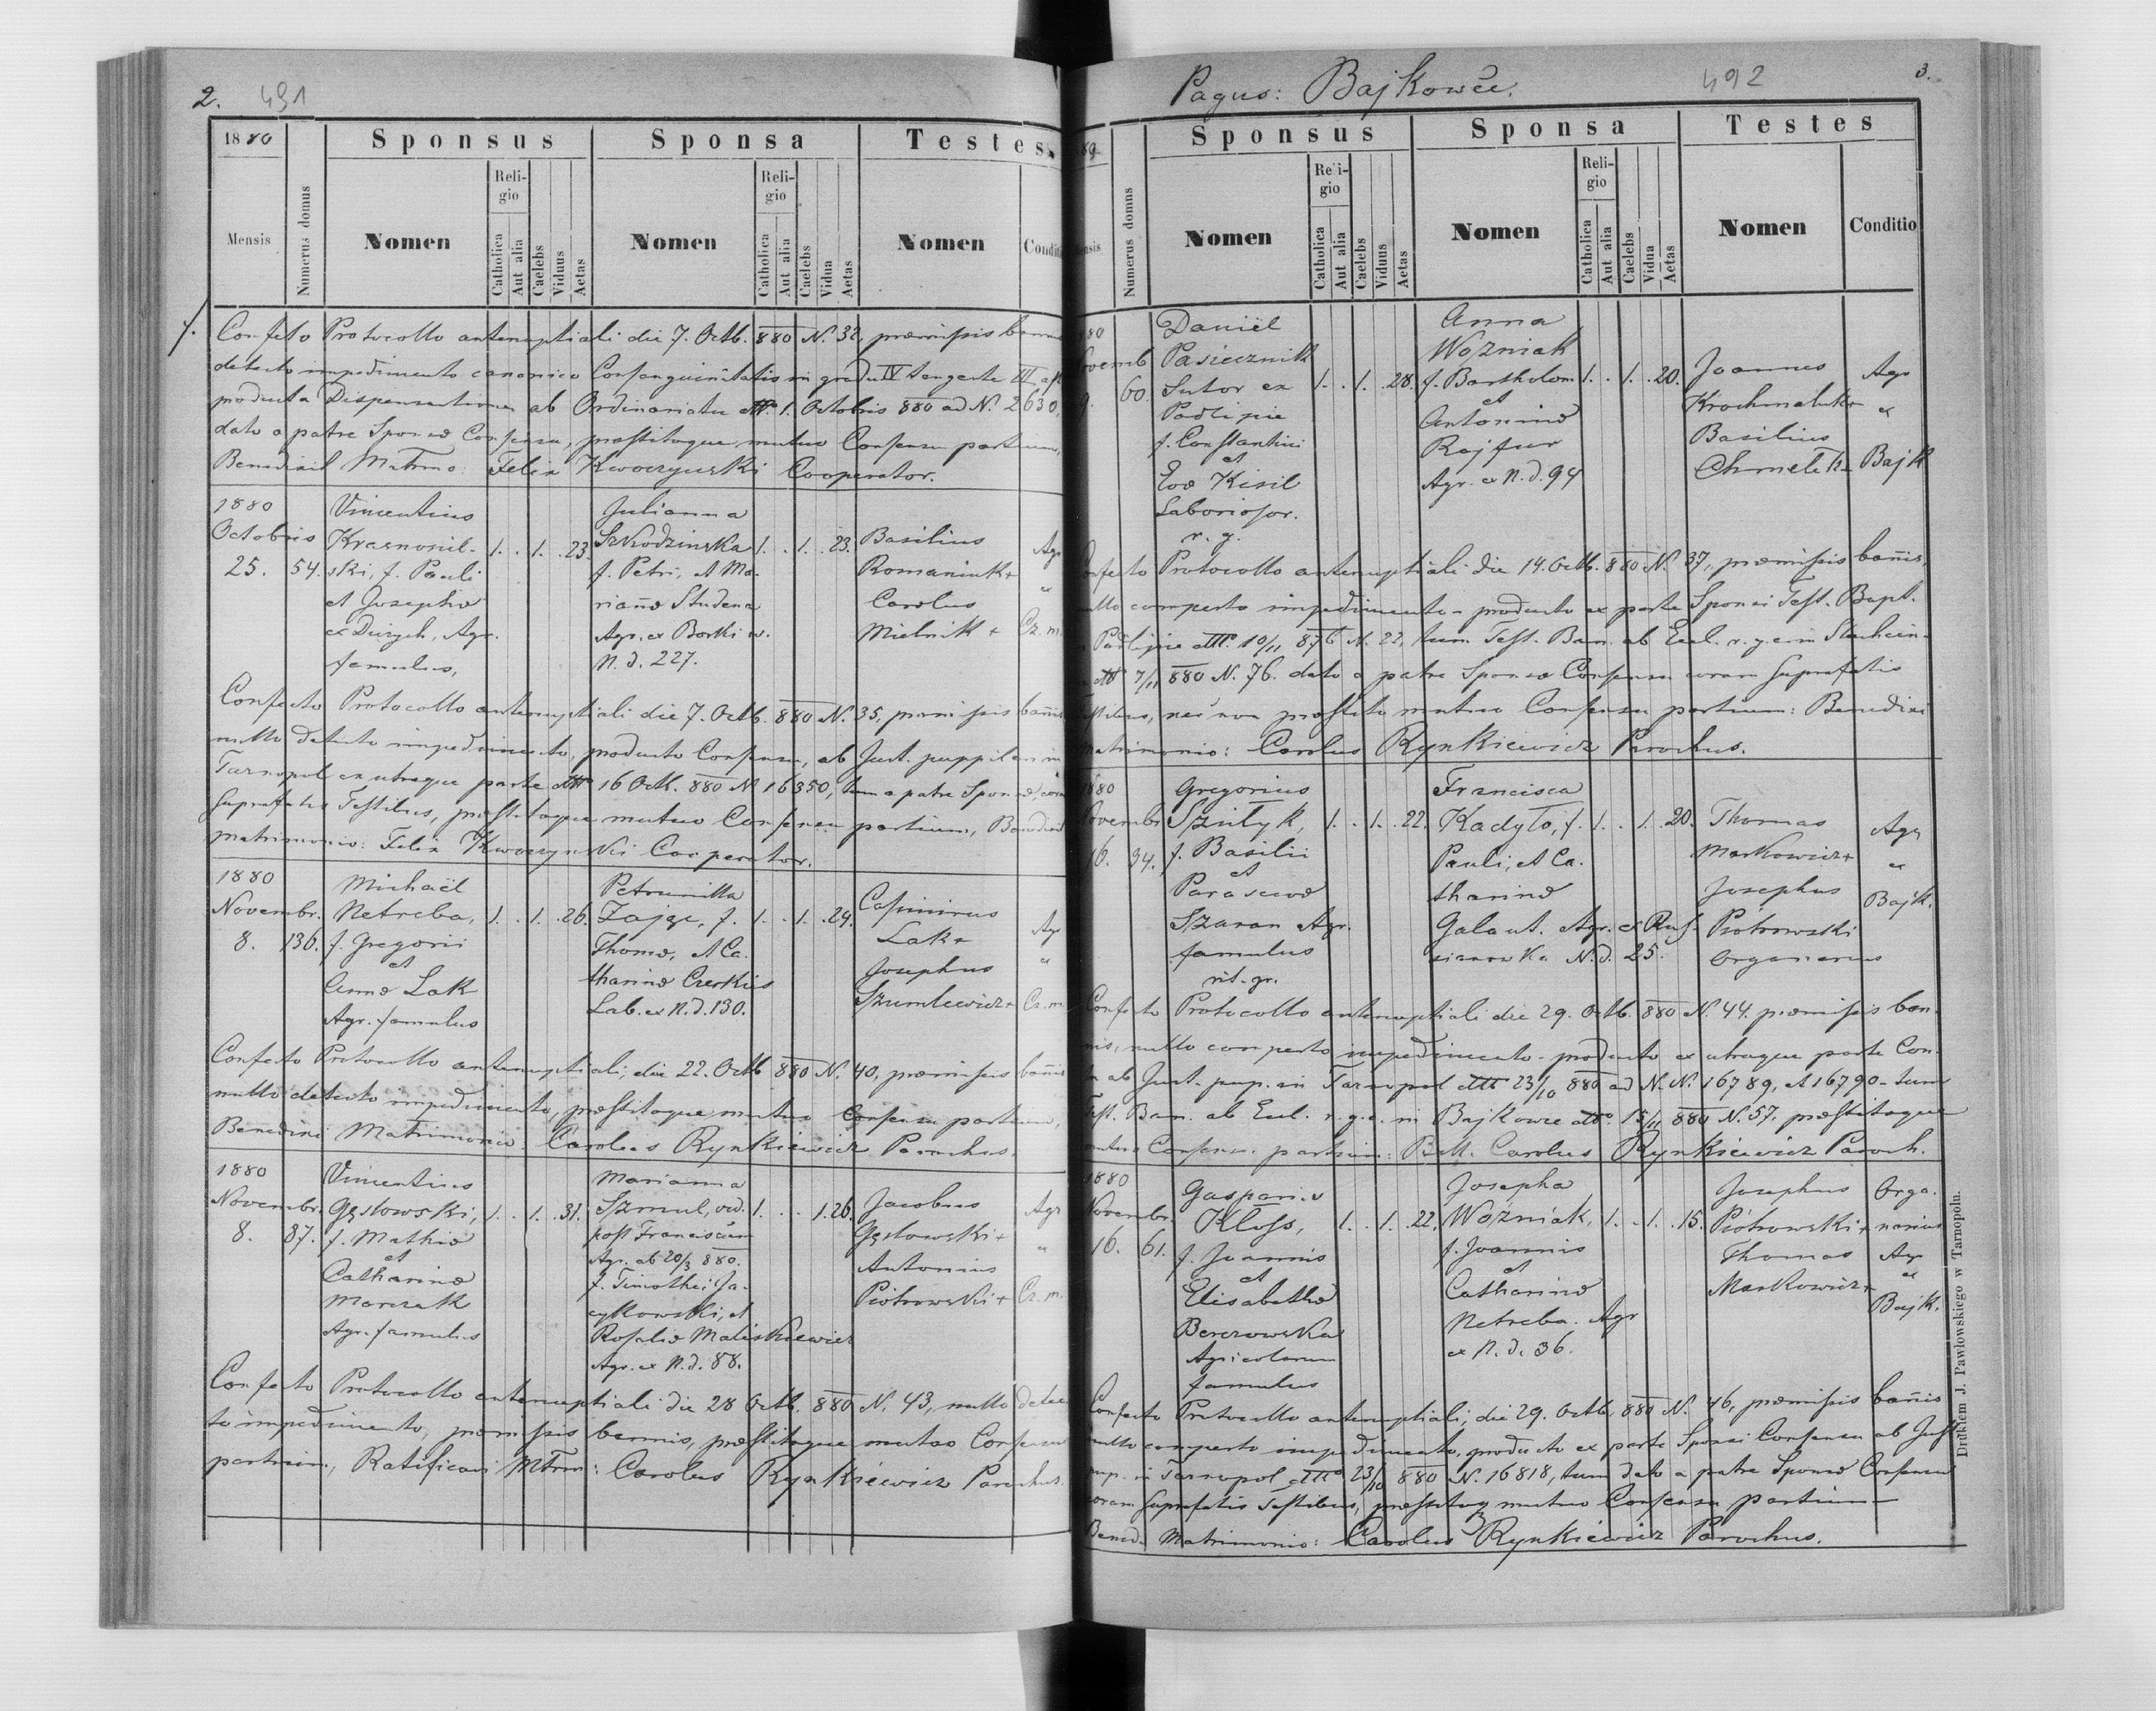 2. 491
1880 Sponsus Sponsa Testes
Mensis Numerus domus Nomen Religio Catholica Aut alia Caelebs Viduus Aetas Nomen Religio Catholica Aut alia Caelebs Vidua Aetas Nomen Conditi
Confecto Protocollo antenuptiali die 7. Octb. 880 N. 32, præmissis bann
detecto impedimento canonico Consanguinitatis in gradu IV tangente III,
producta Dispensatione ab Ordinariatu dtto 1. Octobris 880 ad N. 2630,
dato a patre Sponsæ Consensu, præstitoque mutuo Consensu partium,
Benedixit Matrmo: Felix Kwoczyński Cooperator.
1880 Vincentius Julianna
Octobris Krasnosiel- 1. . 1. .23. Szkodzinska 1. . 1. .23. Basilius Agr
25. 54. ski, f. Pauli f. Petri, et Ma- Romaniuk+ ex
et Josephæ riannæ Studena Carolus
ex Dürych, Agr. Agr. ex Borki w. Mielnik + Cz. m.
famulus, N. d. 227.
Confecto Protocollo antenuptiali die 7. Octb. 880 N. 35, præmissis bañis
nullo detecto impedimento, producto Consensu, ab Jud. puppilari in
Tarnopol ex utraque parte dtto 16 Octb. 880 N 16350, tum a patre Sponsæ, coram
suprafatis Testibus, præstitoque mutuo Consensu partium, Benedixit
matrimonio: Felix Kwoczyński Cooperator.
1880 Michaël Petrunilla
Novembr. Netreba, 1. . 1. .26. Zając, f. 1. . 1. .24. Casimirus Agr
8. 136. f. Gregorii Thomæ, et Ca- Lak+ "
et tharinæ Czerkies Josephus
Annæ Lak Lab. ex N. d. 130. Szumlewicz+ Cz. m.
Agr. famulus
Confecto Protocollo antenuptiali, die 22. Octb 880 N. 40, præmissis bañis
nullo detecto impedimento, præstitoque mutuo Consensu partium,
Benedixi Matrimonio. Carolus Rynkiewicz Parochus.
1880 Vincentius Marianna
Novembr. Gęstowski, 1. . 1. .31. Szmul, vid. 1. . . 1.26. Jacobus Agr
8. 87. f. Mathiæ post Franciscum Gęstowski+ "
et Agr. ab 20/3 880. Antonius
Catharinæ f. Timothei Ja- Piotrowski+ Cz. m.
Marczak cykowski, et
Agr. famulus Rosaliæ Maliskiewicz
Agr. ex N. d. 88.
Confecto Protocollo antenuptiali die 28 Octb. 880 N. 43, nullo detec
to impedimento, præmissis bannis, præstitoque mutuo Consensu
partium, Ratificavi Mtrm: Carolus Rynkiewicz Parochus.
Pagus: Bajkowce. 492 3.
Sponsus Sponsa Testes
Numerus domus Nomen Religio Catholica Aut alia Caelebs Viduus Aetas Nomen Religio Catholica Aut alia Caelebs Vidua Aetas Nomen Conditio
880 Daniël Anna
Novemb Pasiecznik Wozniak
9. 60. Sutor ex 1. . 1. .28. f. Bartholom. 1. . 1. .20. Joannes Agr
Podlipie et Krochmaluk+ ex
f. Constantini Antoninæ Basilius
et Rajfur Chmelik+ Bajk
Evæ Kisil Agr. ex N. d. 94
Laboriosor.
r. g.
Confecto Protocollo antenuptiali die 14. Octb. 880 N. 37, præmissis bañis,
nullo comperto impedimento - producto ex parte Sponsi Test. Bapt.
Podlipie dtto. 10/11 876 N. 22, tum Test. Ban. ab Eccl. r. g. c. in
dtto 7/11 880 N. 76. dato a patre Sponsæ Consensu coram suprafatis
Testibus, nec non præstito mutuo Consensu partium: Benedixi
matrimonio: Carolus Rynkiewicz Parochus.
1880 Gregorius Francisca
Novembr. Sznityk, 1. . 1. .22. Kadyło, f. 1. . 1. .20. Thomas Agr
16. 94. f. Basilii Pauli, et Ca- Markowicz+ ex
et tharinæ Josephus Bajk.
Parascevæ Galaut. Agr. ex Rus- Piotrowski
Szaran Agr. sianowka N. d. 25. Organarius
famulus
rit. gr.
Confecto Protocollo antenuptiali die 29. Octb. 880 N. 44. præmissis ban-
nis, nullo comperto impedimento - producto ex utraque parte Con-
su ab Jud. pup. in Tarnopol dtto 23/10 880 ad N. N. 16789, et 16790 - tum
Test. Ban. ab Eccl. r. g. c. in Bajkowce dtto. 15/11 880 N. 57. præstitoque
mutuo Consensu partium: B. M. Carolus Rynkiewicz Paroch.
1880 Gasparius Josepha Josephus Orga-
Novembr. Kloss, 1. . 1. .22. Wozniak, 1. . 1. .15. Piotrowski+ narius
16. 61. f. Joannis f. Joannis Thomas Agr
et et Markowicz+ ex
Elisabethæ Catharinæ Bajk.
Berezowska Netreba. Agr
Agricolarum ex N. d. 36.
famulus
Confecto Protocollo antenuptiali, die 29. Octb. 880 N. 46, præmissis bañis
nullo comperto impedimento, producto ex parte Sponsi Consensu ab Jud
pup. in Tarnopol dtto 23/10 880 N. 16818, tum dato a patre Sponsæ Consensu
coram suprafatis Testibus, præstitoq mutuo Consensu partium -
Bened. Matrimonio: Carolus Rynkiewicz Parochus.
Drukiem J. Pawłowskiego w Tarnopolu.